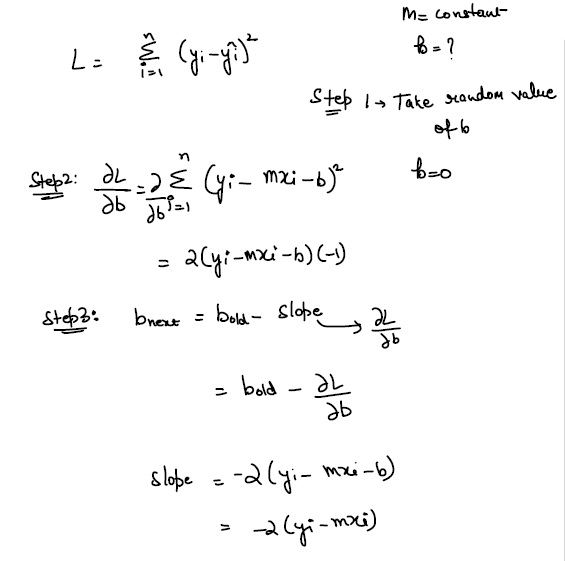 m = constant
L = Σ_{i=1}^{n} (yi - ŷi)²
b = ?
Step 1 → Take random value of b
b = 0
Step 2: ∂L/∂b = ∂/∂b Σ_{i=1}^{n} (yi - mxi - b)²
= 2(yi - mxi - b)(-1)
Step 3: bnext = bold - slope → ∂L/∂b
= bold - ∂L/∂b
slope = -2(yi - mxi - b)
= -2(yi - mxi)